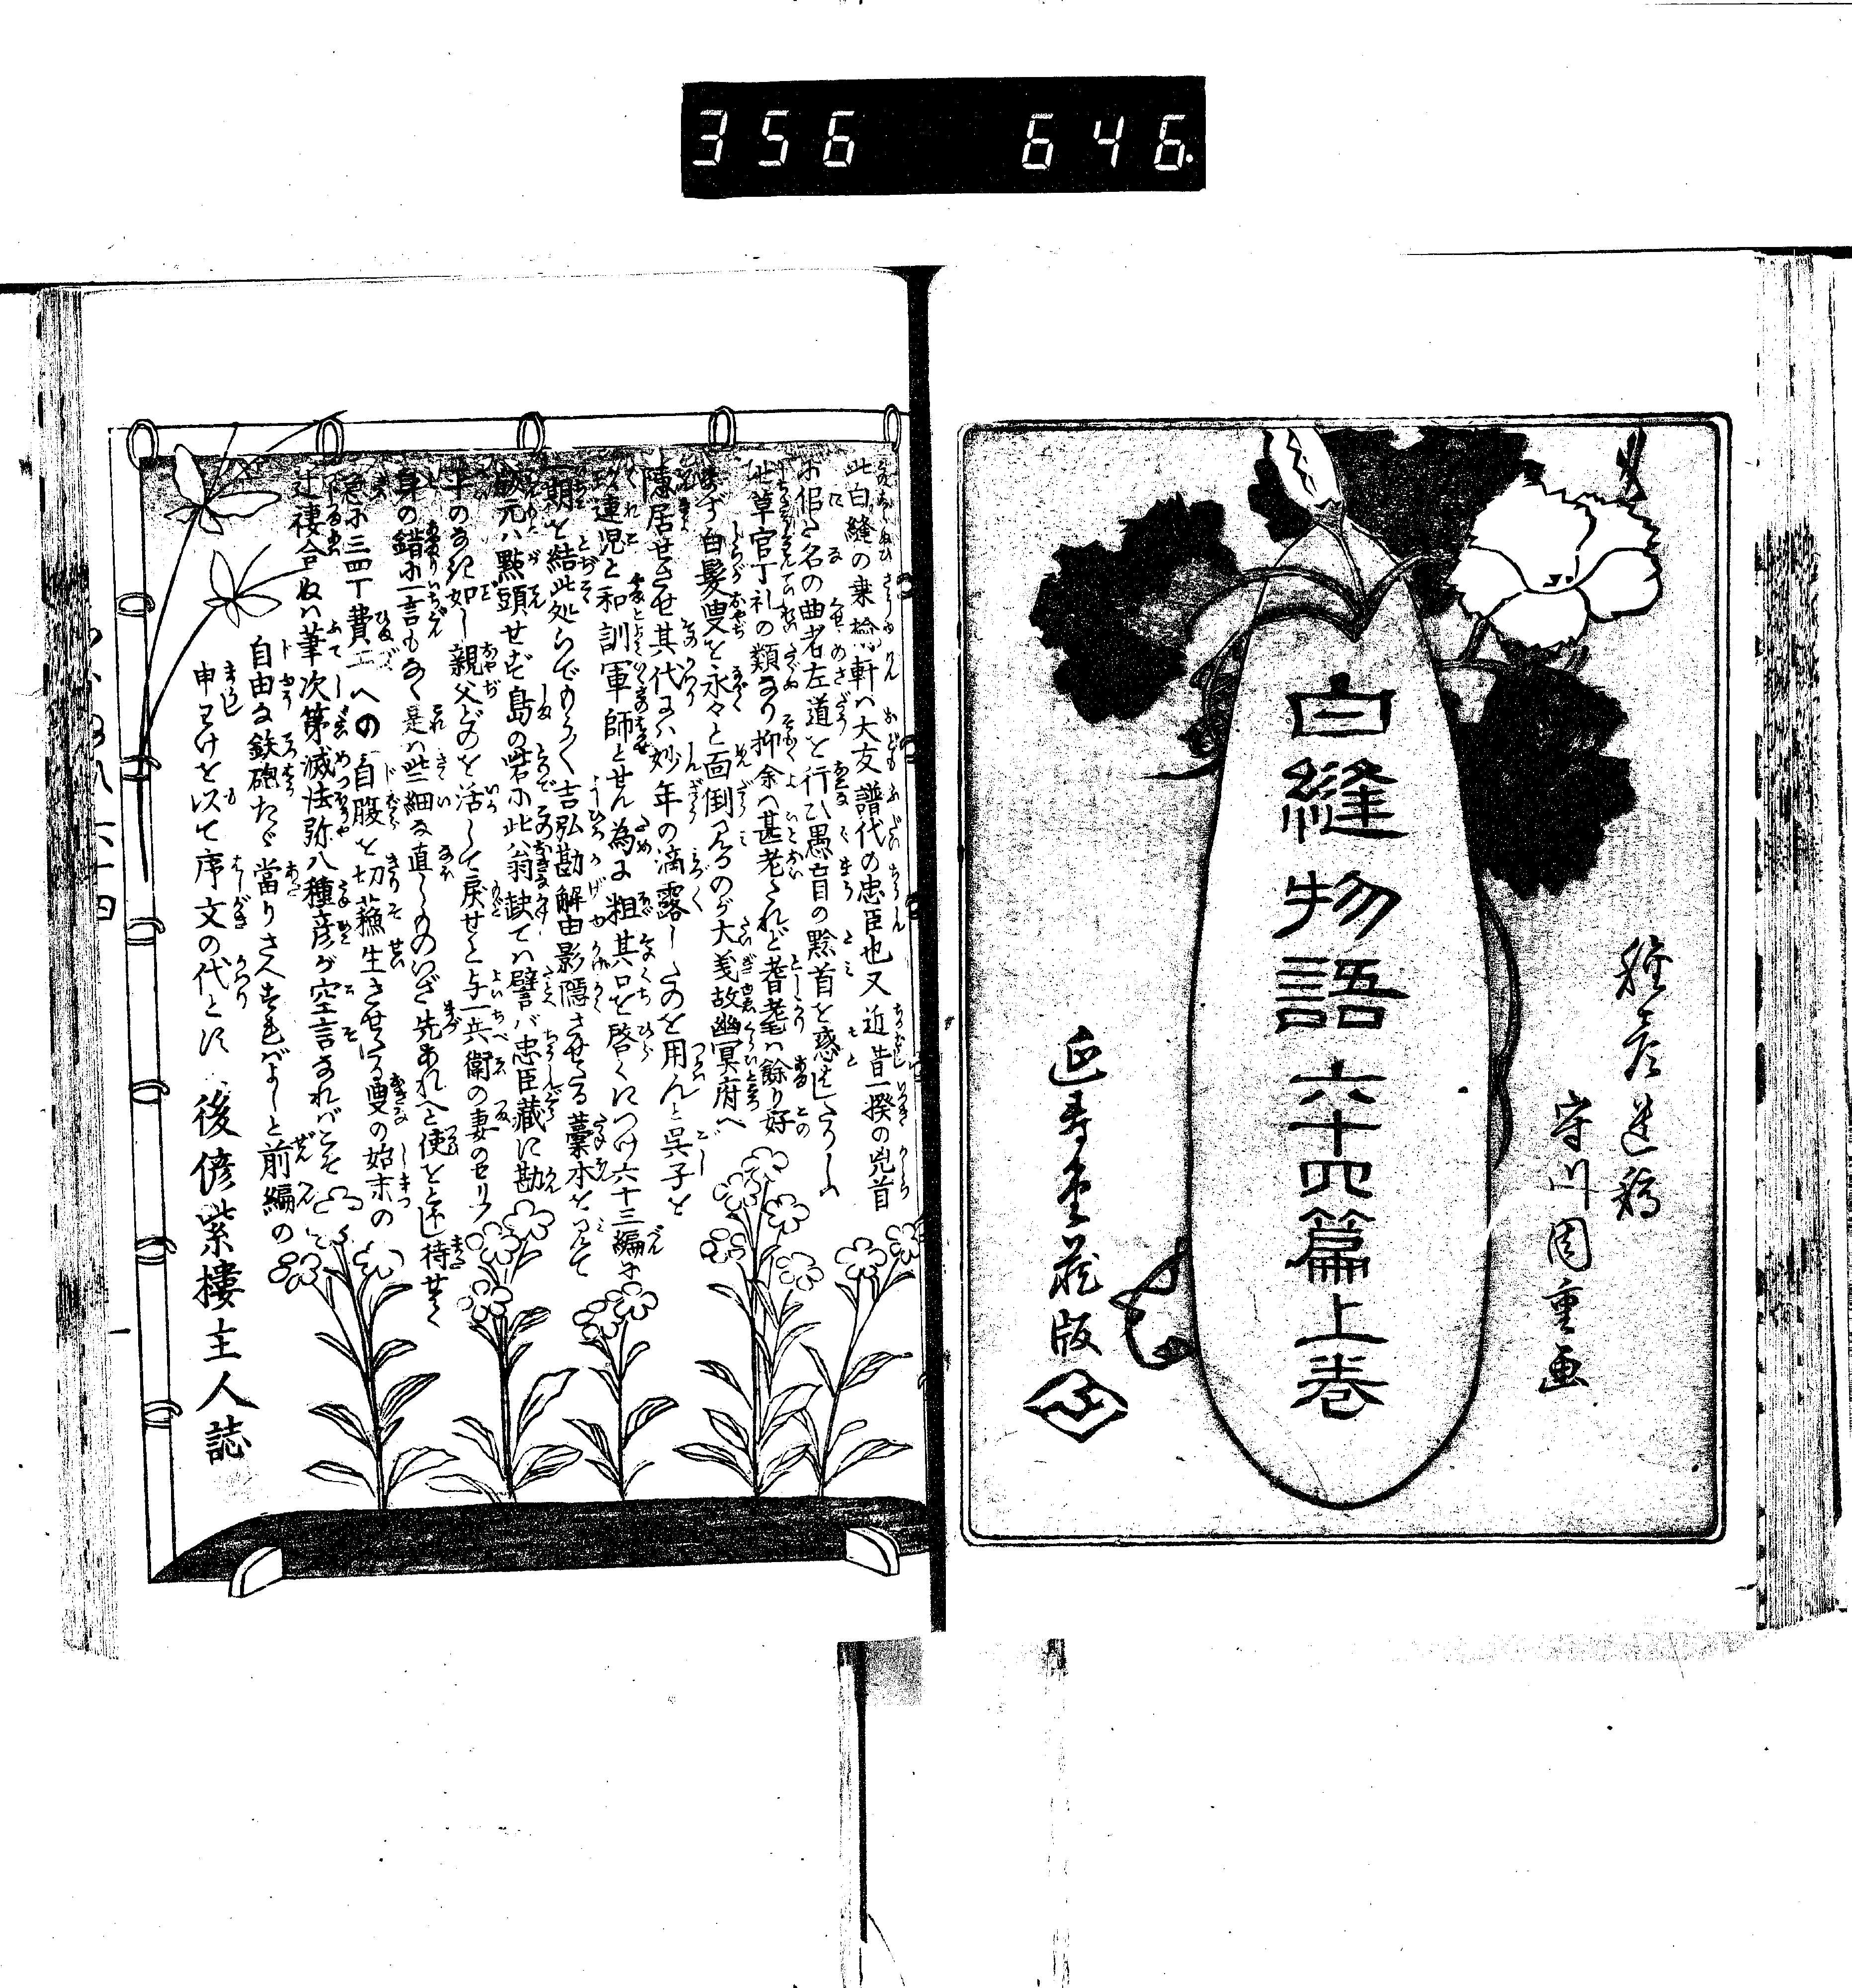 356 646
白縫物語 六十四篇上巻
種彦遺稿
守川周重画
延寿堂蔵版
此白縫の乗㮶軒ハ大友譜代の忠臣也又近昔一揆の兇首
名の曲者左道を行ひ愚盲の黔首を惑はし
草官丁礼の類なり抑余ハ甚老たれど耆耄ハ餘り好
まず白髪叟を永々と面倒みるのが大義故幽冥府へ
陳居せさせ其代に妙年の滴露しものを用んと呉子を
連児と和訓軍師とせん為に粗其口を啓くにつけ六十三編に
一期を結此処らでめうく吉弘勘解由影隠させたる藁木をみて
蔵元ハ點頭せず島の砦に此翁缺てハ譬バ忠臣蔵に勘
平のなき如し親父どのを活して戻せと与一兵衛の妻のセリフ
身の錯に一言もなく是ハ些細な直しものいざ先あれへと使をとほし待せ
急に三四丁費エへの自腹を切蘓生させたる叟の始末の
辻褄合ねハ筆次第滅法弥八種彦が空言なればこそ
自由な鉄砲たゞ當りさへすればよしと前編の
申わけを以て序文の代とす
後偐紫樓主人誌